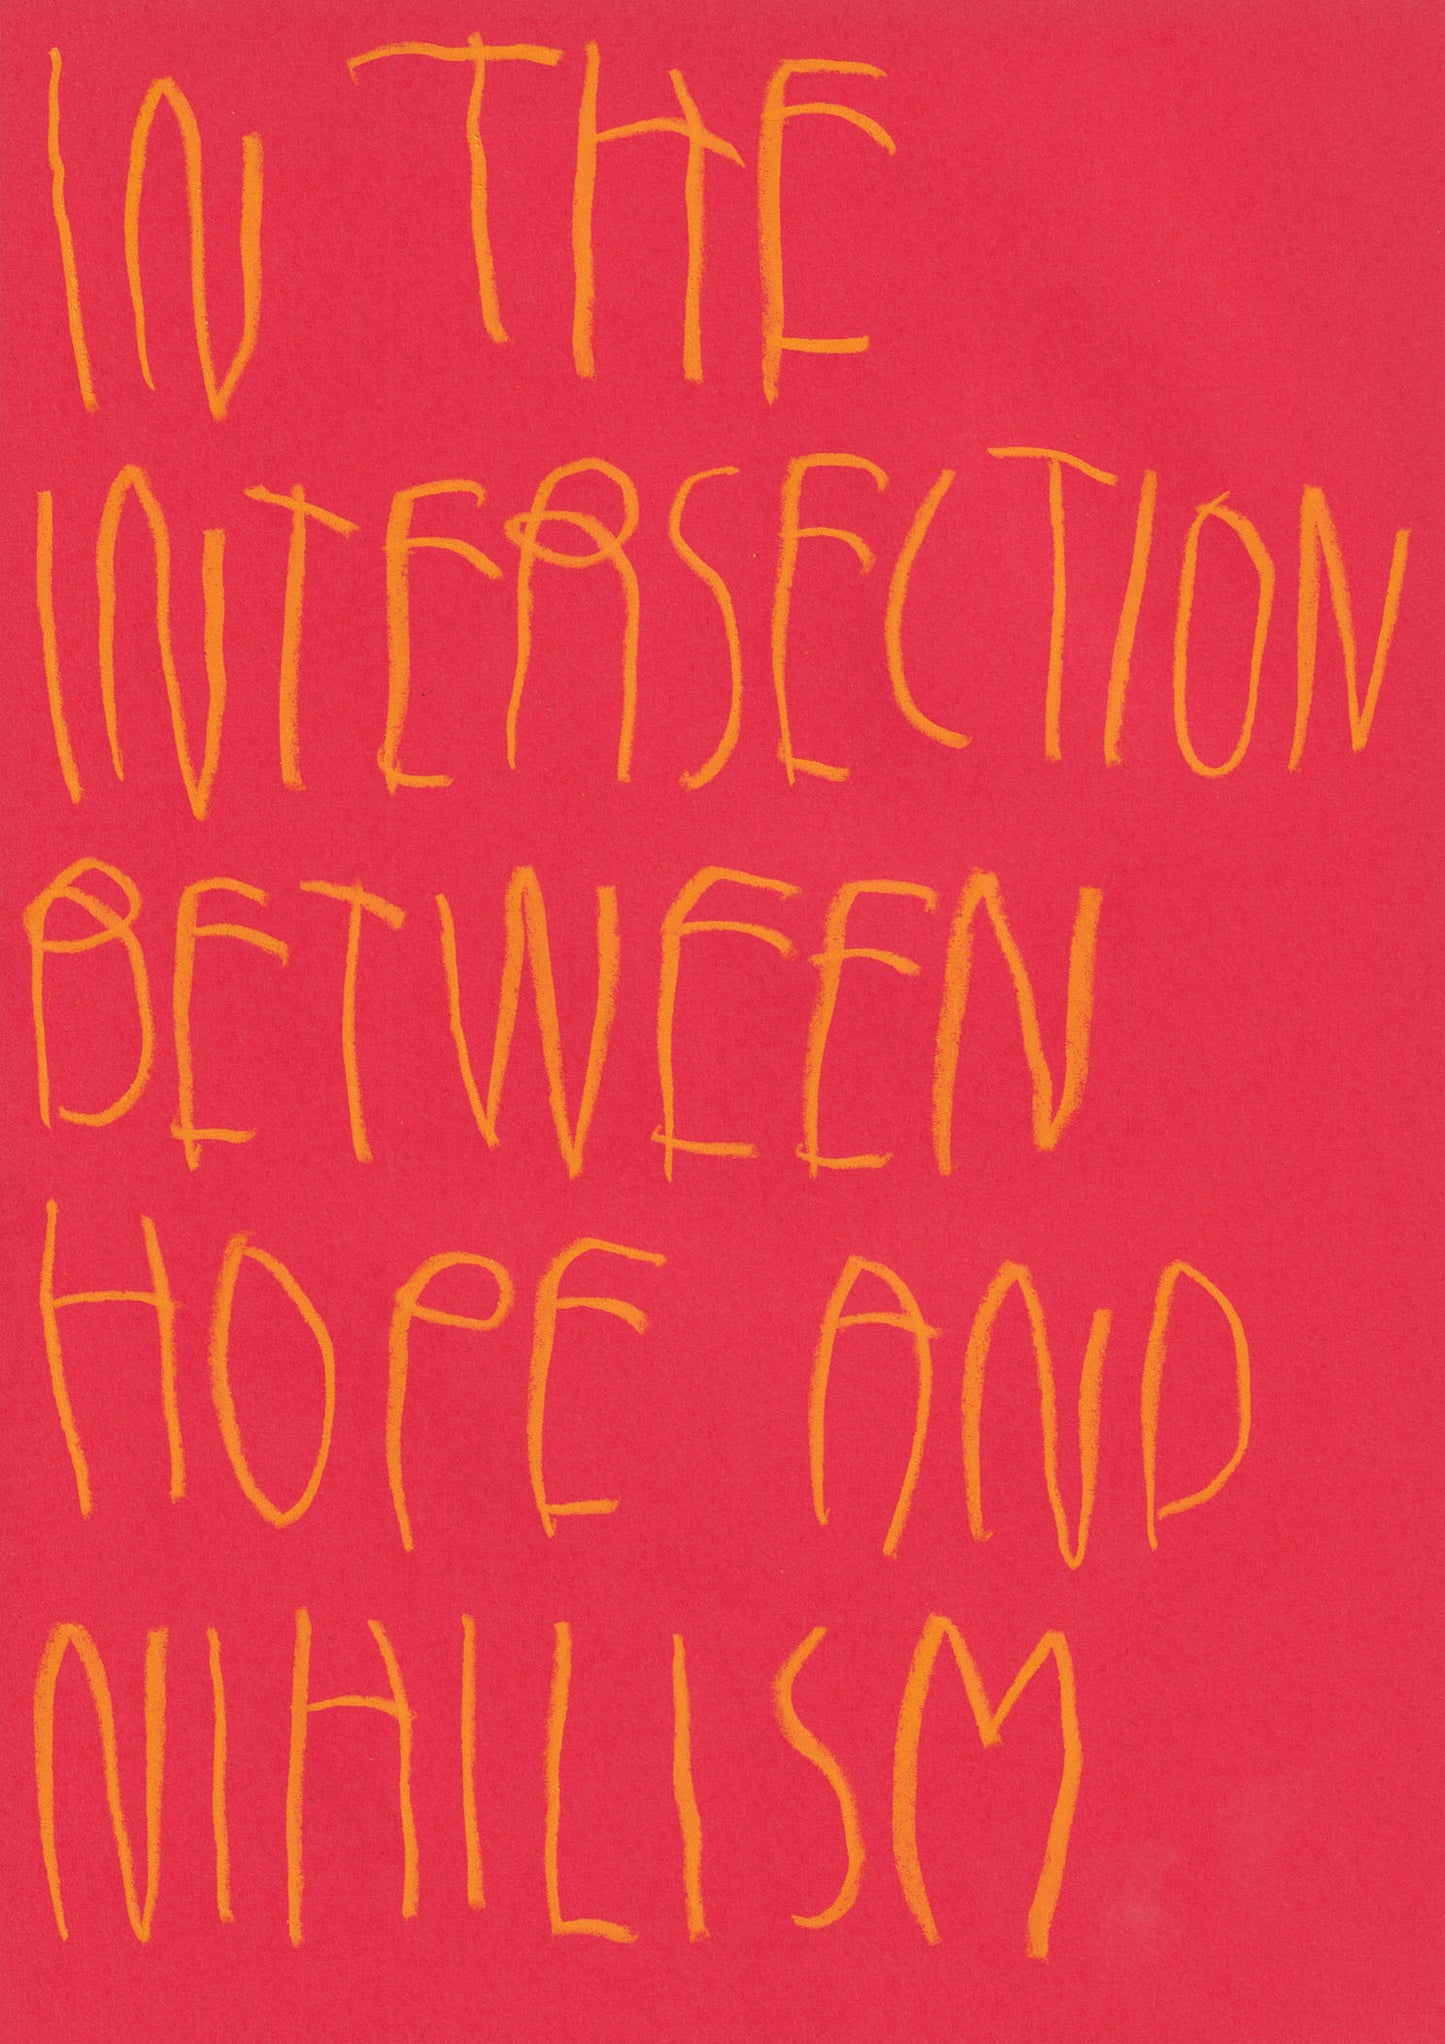 IN THE
INTERSECTION
BETWEEN
HOPE AND
NIHILISM